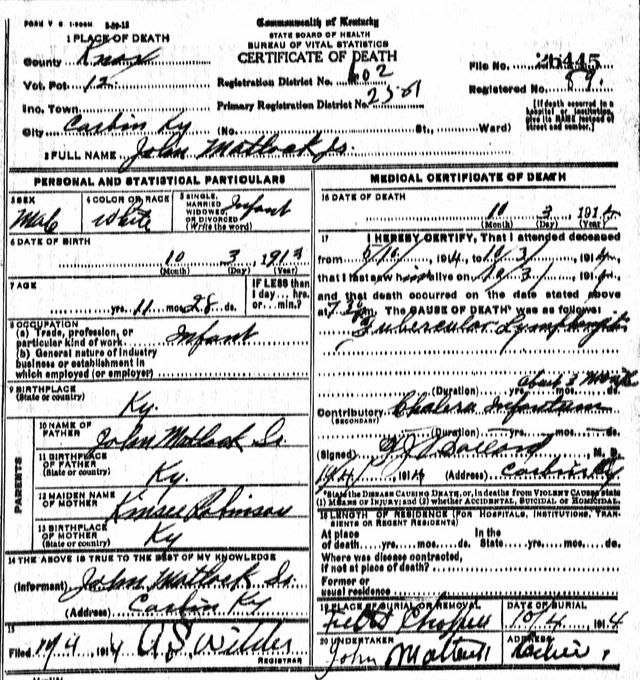 FORM V S. 1-500M. 2-29-12
Commonwealth of Kentucky
STATE BOARD OF HEALTH
BUREAU OF VITAL STATISTICS
CERTIFICATE OF DEATH
1 PLACE OF DEATH
County Knox
Vot. Pct 12
Inc. Town
City Corbin Ky (No. St., Ward)
Registration District No. 602
Primary Registration District No.
File No. 26445
Registered No. 89.
[If death occurred in a hospital or institution, give its NAME instead of street and number.]
2 FULL NAME John Matlock Jr.
PERSONAL AND STATISTICAL PARTICULARS
3 SEX Male
4 COLOR OR RACE White
5 SINGLE, MARRIED WIDOWED, OR DIVORCED (Write the word) Infant
6 DATE OF BIRTH
10 3 1913
(Month) (Day) (Year)
7 AGE
yrs. 11 mos. 28 ds.
IF LESS than 1 day... hrs. or... min.?
8 OCCUPATION
(a) Trade, profession, or particular kind of work Infant
(b) General nature of industry business or establishment in which employed (or employer)
9 BIRTHPLACE (State or country) Ky.
PARENTS
10 NAME OF FATHER John Matlock Sr.
11 BIRTHPLACE OF FATHER (State or country) Ky.
12 MAIDEN NAME OF MOTHER Robinson
13 BIRTHPLACE OF MOTHER (State or country) Ky
14 THE ABOVE IS TRUE TO THE BEST OF MY KNOWLEDGE
(Informant) John Matlock Sr.
(Address) Corbin Ky
15
Filed 10/4, 1914 Wilder
REGISTRAR
MEDICAL CERTIFICATE OF DEATH
16 DATE OF DEATH
10 3, 1914
(Month) (Day) (Year)
17 I HEREBY CERTIFY, That I attended deceased
from , 1914, to 10/3, 1914,
that I last saw him alive on 10/3, 1914,
and that death occurred on the date stated above
at m. The CAUSE OF DEATH* was as follows:
Tubercular
(Duration) yrs. about 3 months ds.
Contributory Cholera Infantum
(SECONDARY)
(Duration) yrs. mos. ds.
(Signed) M. D.
1914 (Address) Corbin Ky
*State the DISEASE CAUSING DEATH, or, in deaths from VIOLENT CAUSES, state (1) MEANS OF INJURY; and (2) whether ACCIDENTAL, SUICIDAL or HOMICIDAL.
18 LENGTH OF RESIDENCE (FOR HOSPITALS, INSTITUTIONS, TRANSIENTS OR RECENT RESIDENTS)
At place of death yrs. mos. ds. In the State yrs. mos. ds.
Where was disease contracted, if not at place of death?
Former or usual residence
19 PLACE OF BURIAL OR REMOVAL
DATE OF BURIAL
10/4, 1914
20 UNDERTAKER
John
ADDRESS